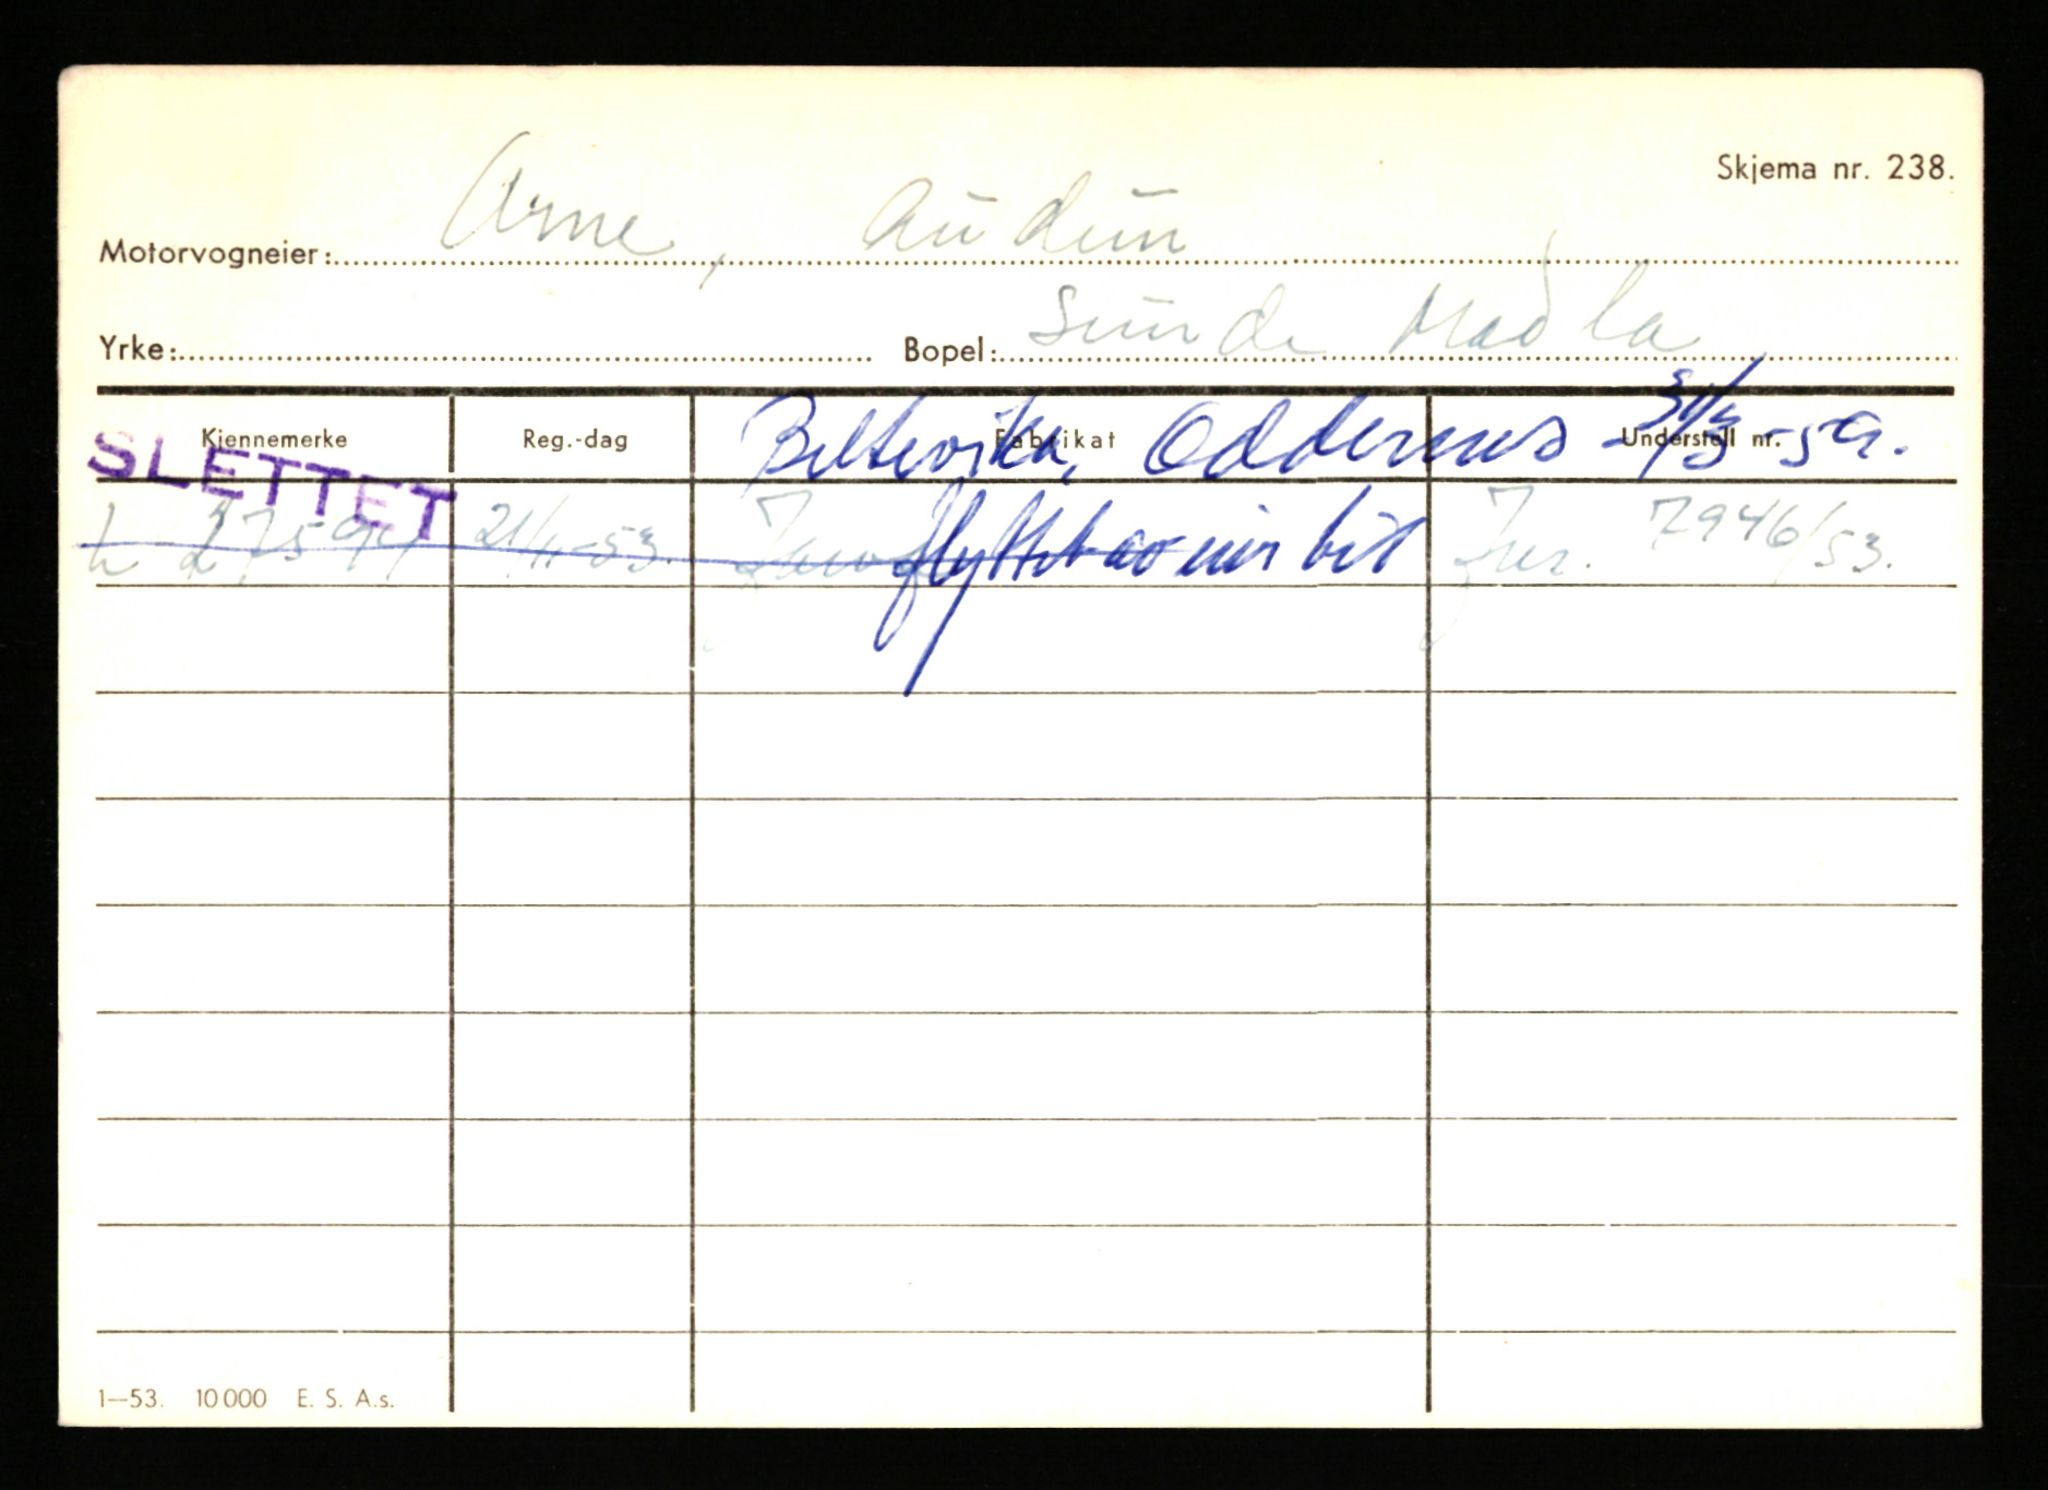 Skjema nr. 238.
Motorvogneier: Arne, Audun
Yrke: Bopel: Sunde Madla
Kjennemerke Reg.-dag Fabrikat Understell nr.
SLETTET Beltevika, Oddernes 31/3-59.
L 27594 21/11-53. flyttet av min bil Jnr. 7946/53.
1—53. 10000 E. S. A.s.